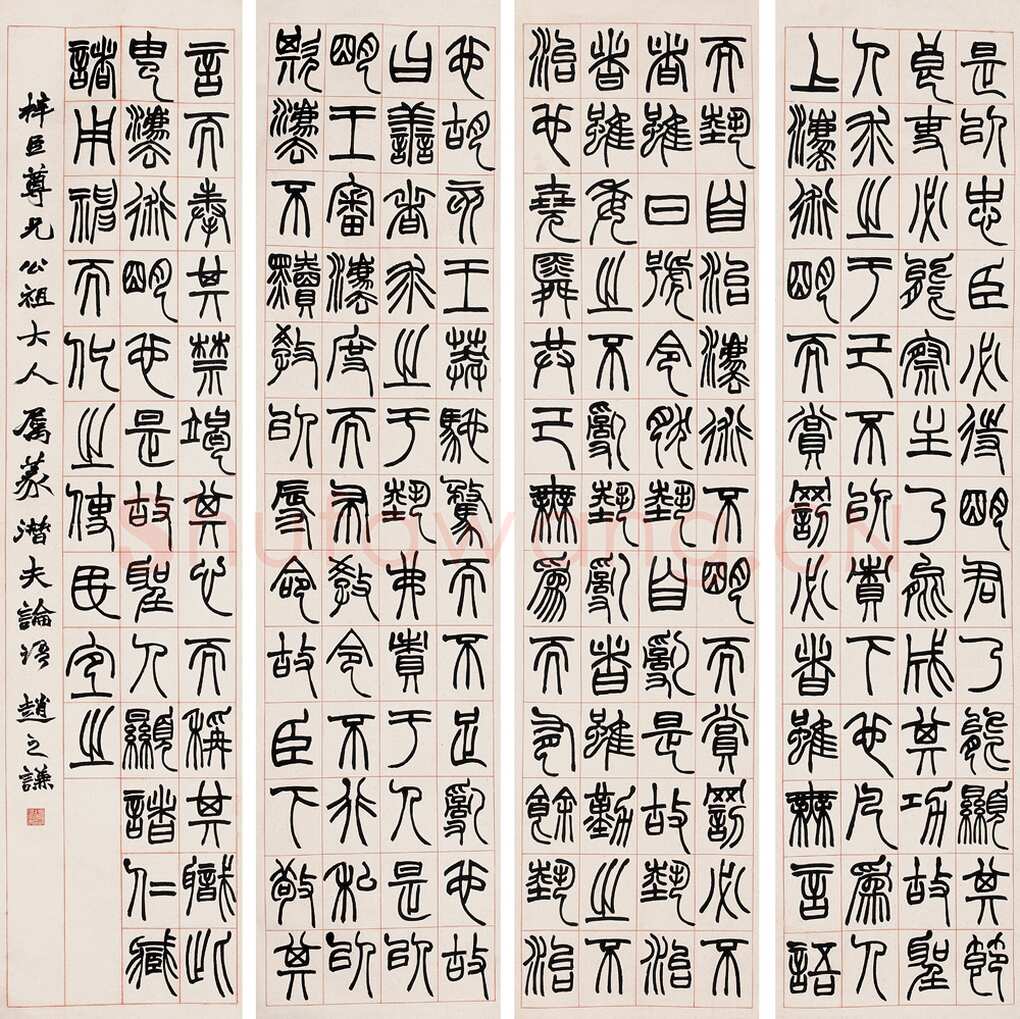 是以忠臣必待明君乃能顯其節
良吏必能察主乃能成其功故聖
人求之于己不以責下也凡為人
上法術明而賞罰必者雖無言語
而勢自治法術不明而賞罰必不
者雖曰號令然勢自亂是故勢治
者雖委之不亂勢亂者雖勤之不
治也堯舜共己無為而有餘勢治
也胡亥王莽馳騖而不足亂也故
曰善者求之于勢弗責于人是以
明王審法度而布教令不行私以
欺法不黷教以辱命故臣下敬其
言而奉其禁竭其心而稱其職此
由法術明也是故聖人顯諸仁臧
諸用神而化之使民宜之
梓臣尊兄公祖大人属篆潛夫論語 趙之謙